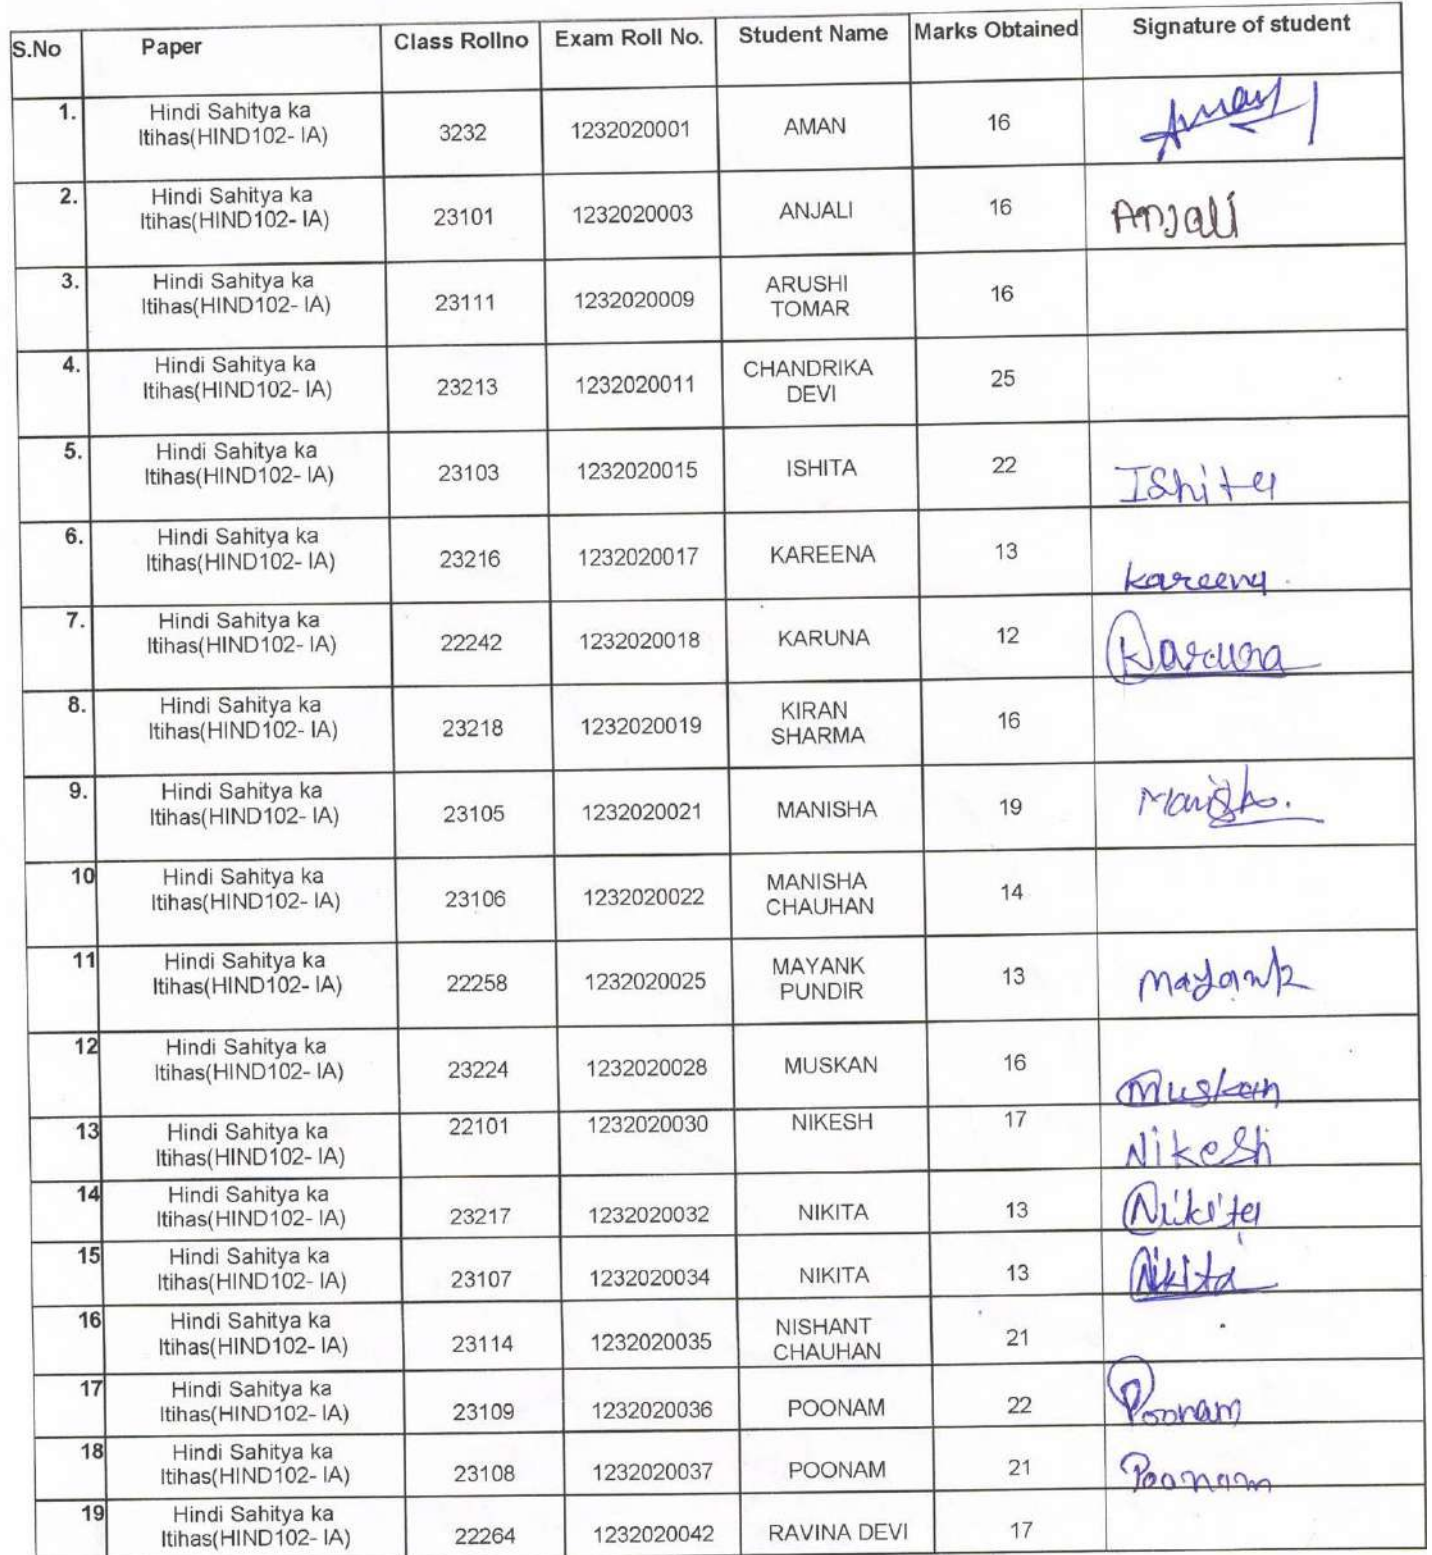 S.No Paper Class Rollno Exam Roll No. Student Name Marks Obtained Signature of student
1. Hindi Sahitya ka
Itihas(HIND102- IA) 3232 1232020001 AMAN 16 Aman
2. Hindi Sahitya ka
Itihas(HIND102- IA) 23101 1232020003 ANJALI 16 Anjali
3. Hindi Sahitya ka ARUSHI
Itihas(HIND102- IA) 23111 1232020009 TOMAR 16
4. Hindi Sahitya ka CHANDRIKA
Itihas(HIND102- IA) 23213 1232020011 DEVI 25
5. Hindi Sahitya ka
Itihas(HIND102- IA) 23103 1232020015 ISHITA 22 Ishita
6. Hindi Sahitya ka
Itihas(HIND102- IA) 23216 1232020017 KAREENA 13 kareena
7. Hindi Sahitya ka
Itihas(HIND102- IA) 22242 1232020018 KARUNA 12 Karuna
8. Hindi Sahitya ka KIRAN
Itihas(HIND102- IA) 23218 1232020019 SHARMA 16
9. Hindi Sahitya ka
Itihas(HIND102- IA) 23105 1232020021 MANISHA 19 Manisha
10 Hindi Sahitya ka MANISHA
Itihas(HIND102- IA) 23106 1232020022 CHAUHAN 14
11 Hindi Sahitya ka MAYANK
Itihas(HIND102- IA) 22258 1232020025 PUNDIR 13 Mayank
12 Hindi Sahitya ka
Itihas(HIND102- IA) 23224 1232020028 MUSKAN 16 Muskan
13 Hindi Sahitya ka 22101 1232020030 NIKESH 17 Nikesh
Itihas(HIND102- IA)
14 Hindi Sahitya ka
Itihas(HIND102- IA) 23217 1232020032 NIKITA 13 Nikita
15 Hindi Sahitya ka
Itihas(HIND102- IA) 23107 1232020034 NIKITA 13 Nikita
16 Hindi Sahitya ka NISHANT
Itihas(HIND102- IA) 23114 1232020035 CHAUHAN 21
17 Hindi Sahitya ka
Itihas(HIND102- IA) 23109 1232020036 POONAM 22 Poonam
18 Hindi Sahitya ka
Itihas(HIND102- IA) 23108 1232020037 POONAM 21 Poonam
19 Hindi Sahitya ka
Itihas(HIND102- IA) 22264 1232020042 RAVINA DEVI 17